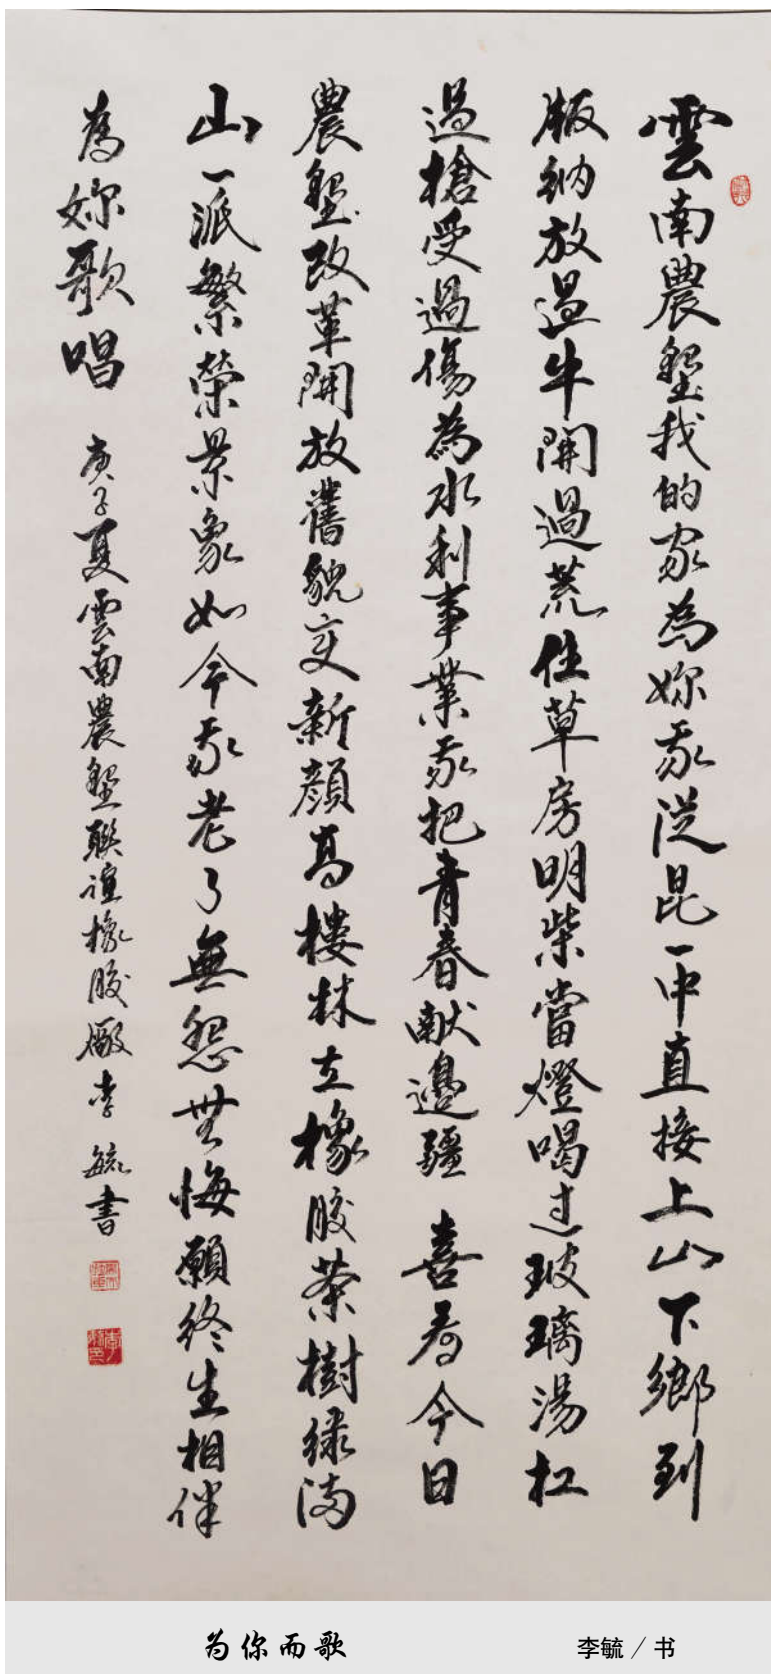 雲南農墾我的家為妳我從昆一中直接上山下鄉到
版納放過牛開過荒住草房明柴當燈喝过玻璃湯扛
過槍受過傷為水利事業我把青春献邊疆喜看今日
農墾改革開放舊貌变新顏高樓林立橡膠茶樹綠滿
山一派繁榮景象如今我老了無怨無悔願終生相伴
為妳歌唱
庚子夏雲南農墾聯誼橡膠廠李毓書
为你而歌
李毓／书